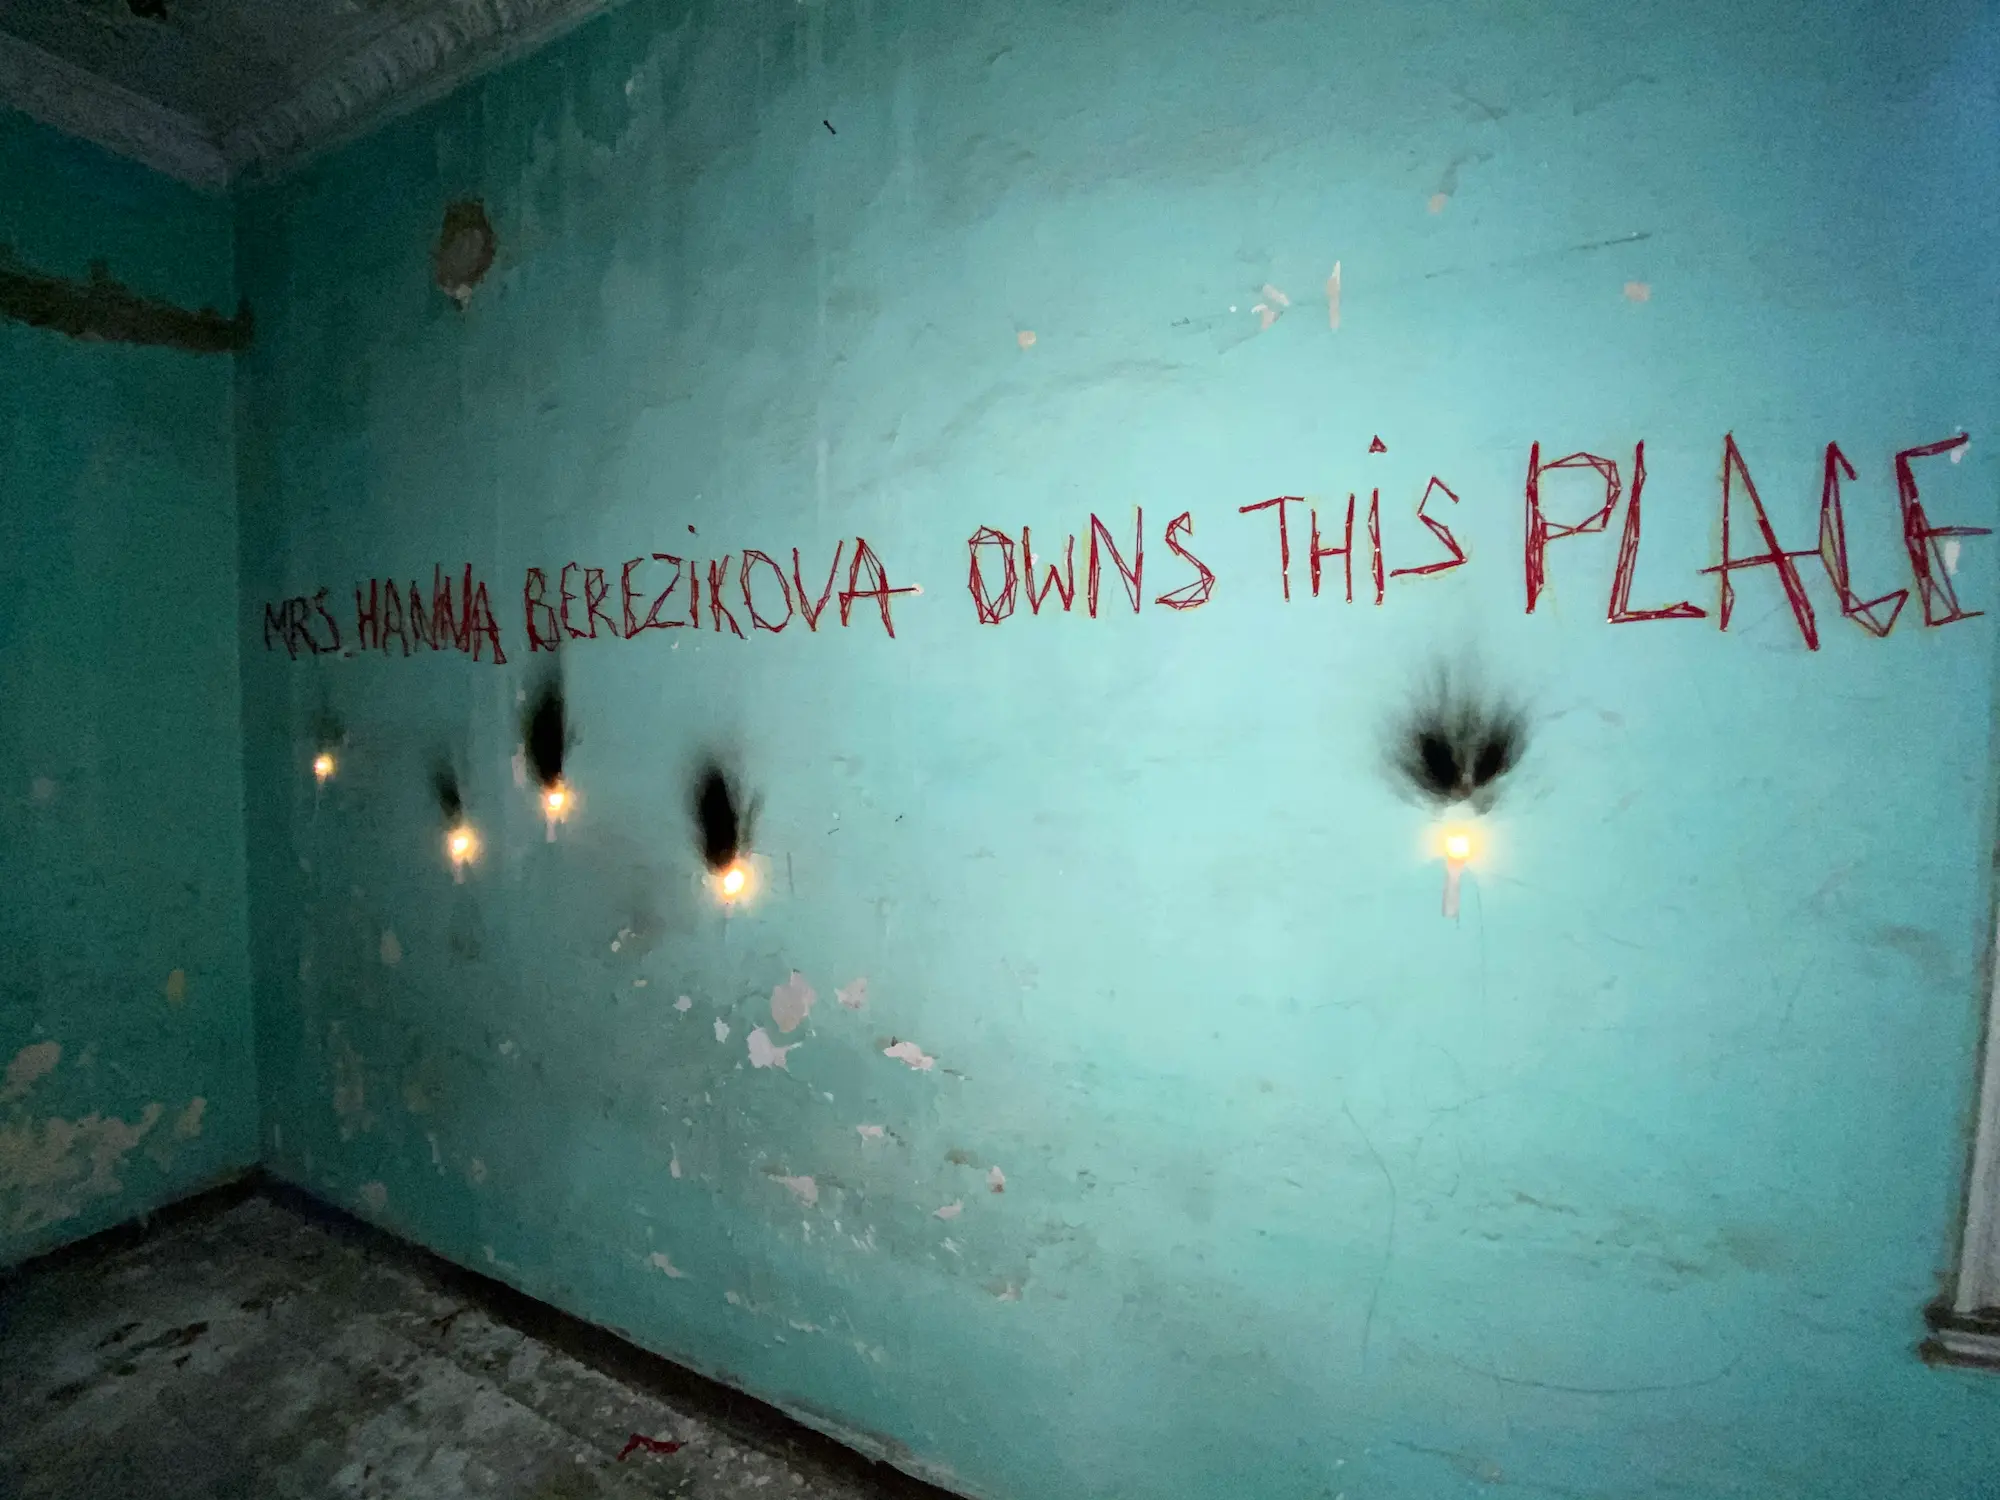 MRS. HANNA BEREZiKOVA OWNS THiS PLACE